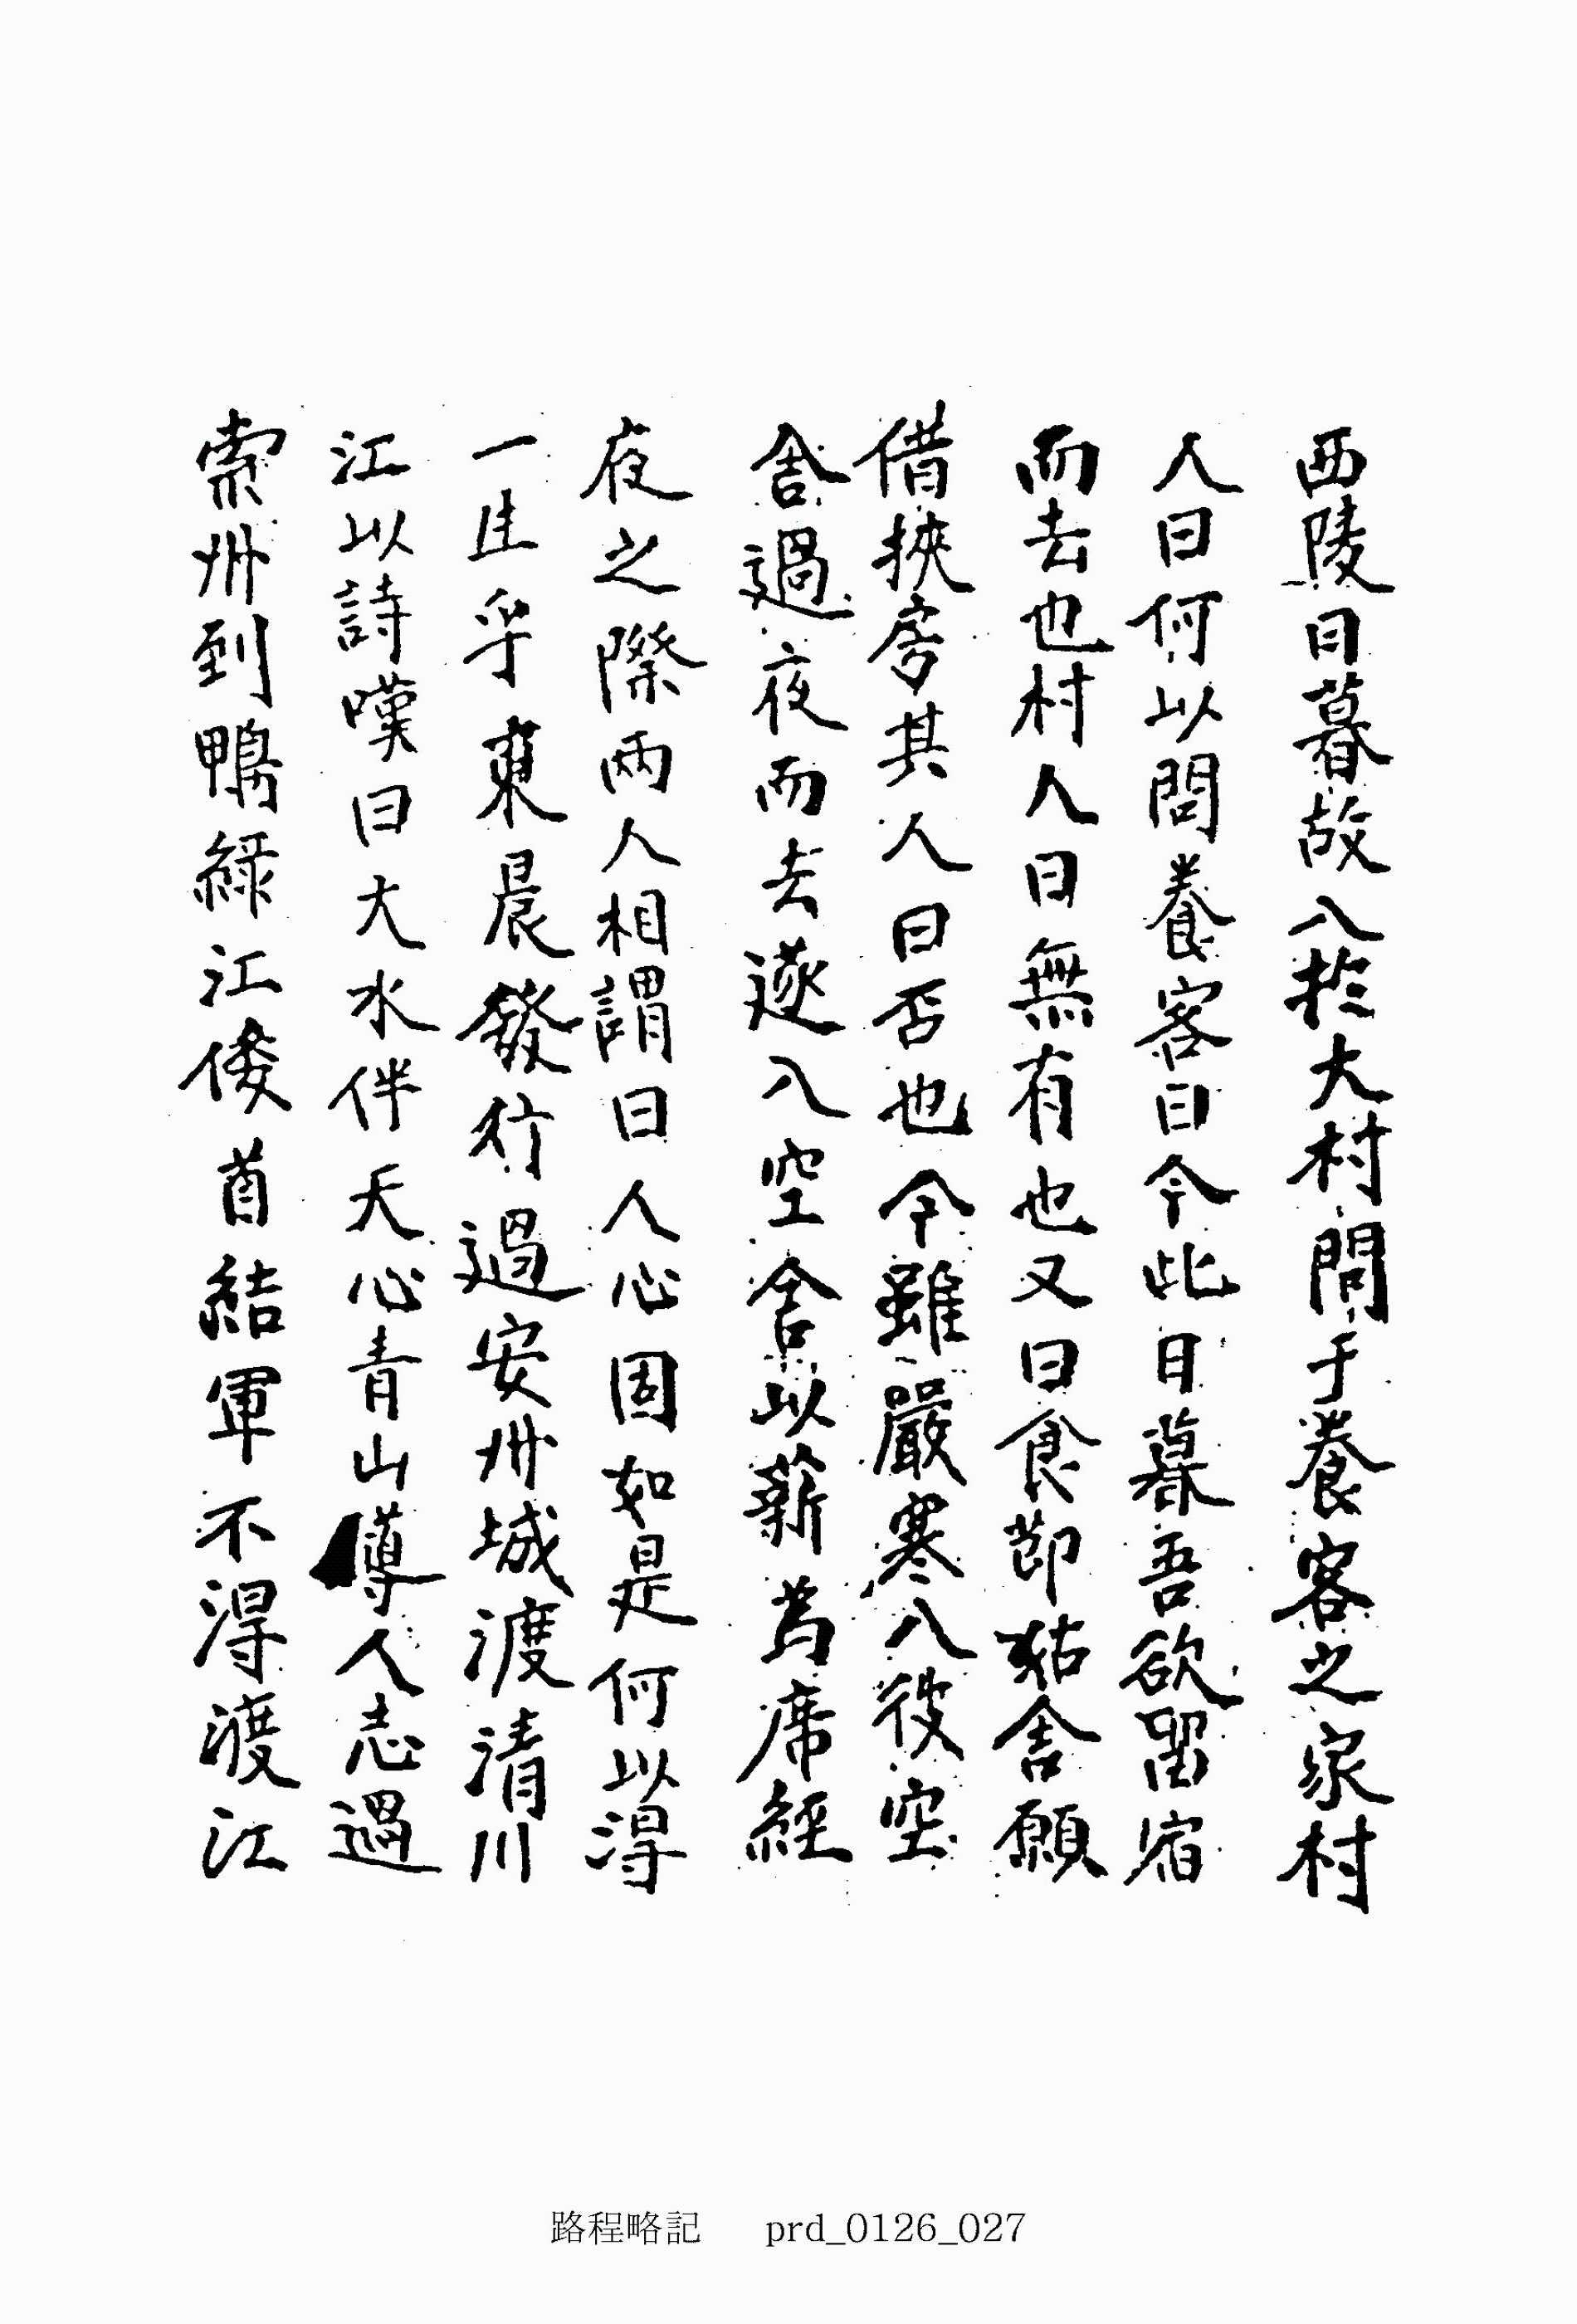 西陵日暮故入於大村問于養客之家村
人曰何以問養客曰今此日暮吾欲留宿
而去也村人曰無有也又曰食節姑舍願
借挾房其人曰否也今雖嚴寒入彼空
舍過夜而去遂入空舍以薪爲席經
夜之際兩人相謂曰人心固如是何以得
一生乎東晨發行過安州城渡清川
江以詩嘆曰大水伴天心青山噂人志過
索州到鴨綠江倭酋結軍不得渡江
路程略記 prd_0126_027